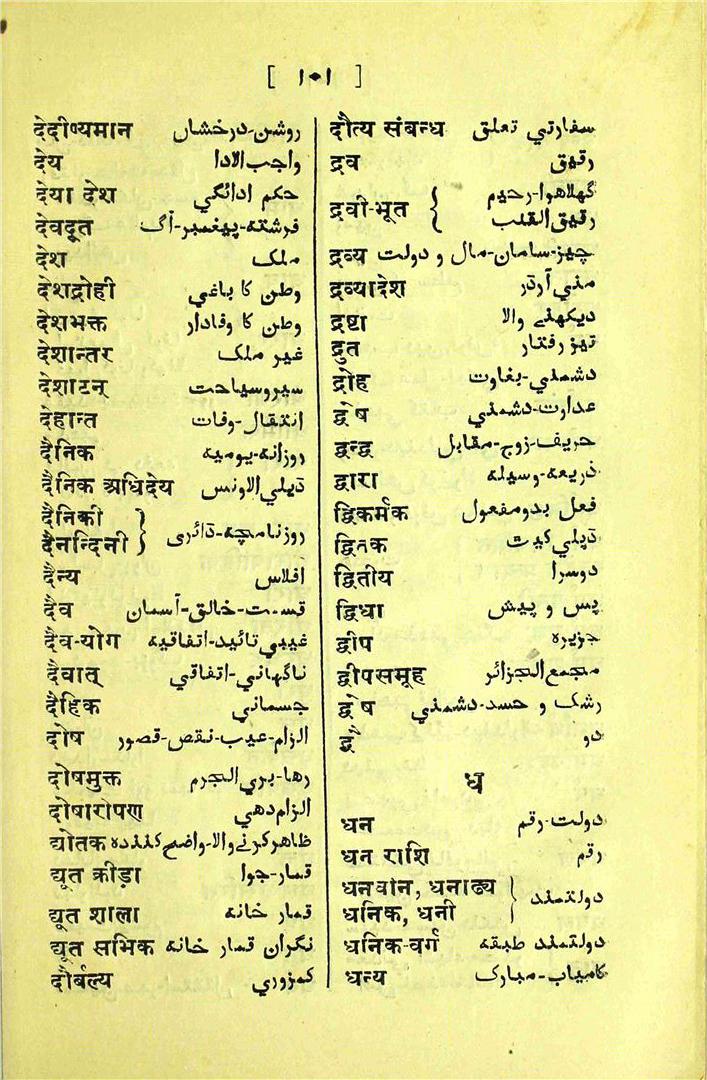 [ ١٠١ ]
देदीप्यमान روشن-درخشاں
देय واجب الادا
देया देश حکم ادائگي
देवदूत فرشته-پيغمبر-آگ
देश ملک
देशद्रोही وطن کا باغي
देशभक्त وطن کا وفادار
देशान्तर غير ملک
देशाटन् سيروسياحت
देहान्त انتقال-وفات
दैनिक روزانه-يوميه
दैनिक अधिदेय ڈيلي الاونس
दैनिकी
दैनन्दिनी } روزنامچه-ڈائری
दैन्य افلاس
दैव قسمت-خالق-آسمان
दैव-योग غيبي تائيد-اتفاقيه
दैवात् ناگهاني-اتفاقي
दैहिक جسماني
दोष الزام-عيب-نقص-قصور
दोषमुक्त رها-بري الجرم
दोषारोपण الزام دهي
द्योतक ظاهر کرنے والا-واضح کننده
द्यूत क्रीड़ा قمار-جوا
द्यूत शाला قمار خانه
द्यूत सभिक نگران قمار خانه
दौर्बल्य کمزوري
दौत्य संबन्ध سفارتي تعلق
द्रव رقيق
द्रवी-भूत { گهلاهوا-رحيم
رقيق القلب
द्रव्य چيز-سامان-مال و دولت
द्रव्यादेश مني آرڈر
द्रष्टा ديکهنے والا
द्रुत تيز رفتار
द्रोह دشمني-بغاوت
द्वेष عداوت-دشمني
द्वन्द्व حريف-زوج-مقابل
द्वारा ذريعه-وسيله
द्विकर्मक فعل بدومفعول
द्वितक ڈپلي کيٹ
द्वितीय دوسرا
द्विधा پس و پيش
द्वीप جزيره
द्वीपसमूह مجمع الجزائر
द्वेष رشک و حسد-دشمني
द्वै دو
ध
धन دولت-رقم
धन राशि رقم
धनवान, धनाढ्य
धनिक, धनी } دولتمند
धनिक-वर्ग دولتمند طبقه
धन्य کامياب-مبارک